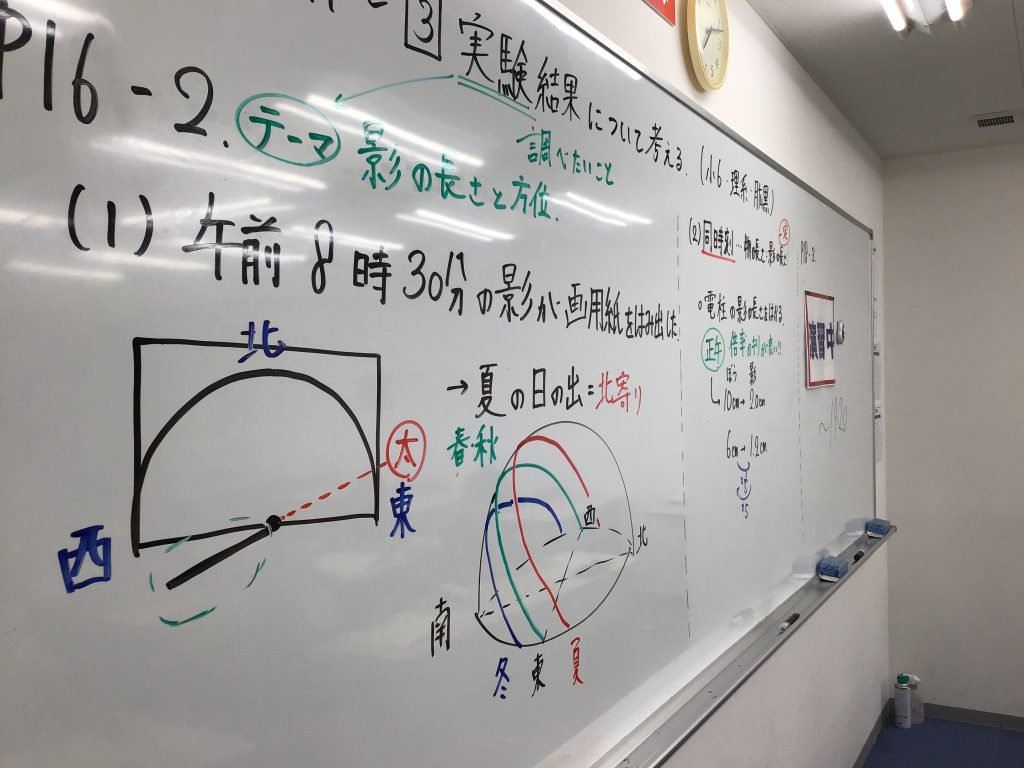 3 実験結果について考える.
調べたいこと
P16-2.
テーマ 影の長さと方位.
(1) 午前8時30分の影が画用紙をはみ出した.
北
太
東
西
→夏の日の出=北寄り
春・秋
西
北
南
冬 東 夏
(小6・理系
(2) 同時刻…
影の長さ
○電柱の影の長さをはかる.
正午 倍率のキリが良い!!
ぼう 影
10cm→20cm
6cm→1.2cm
×5
演習中
~1920